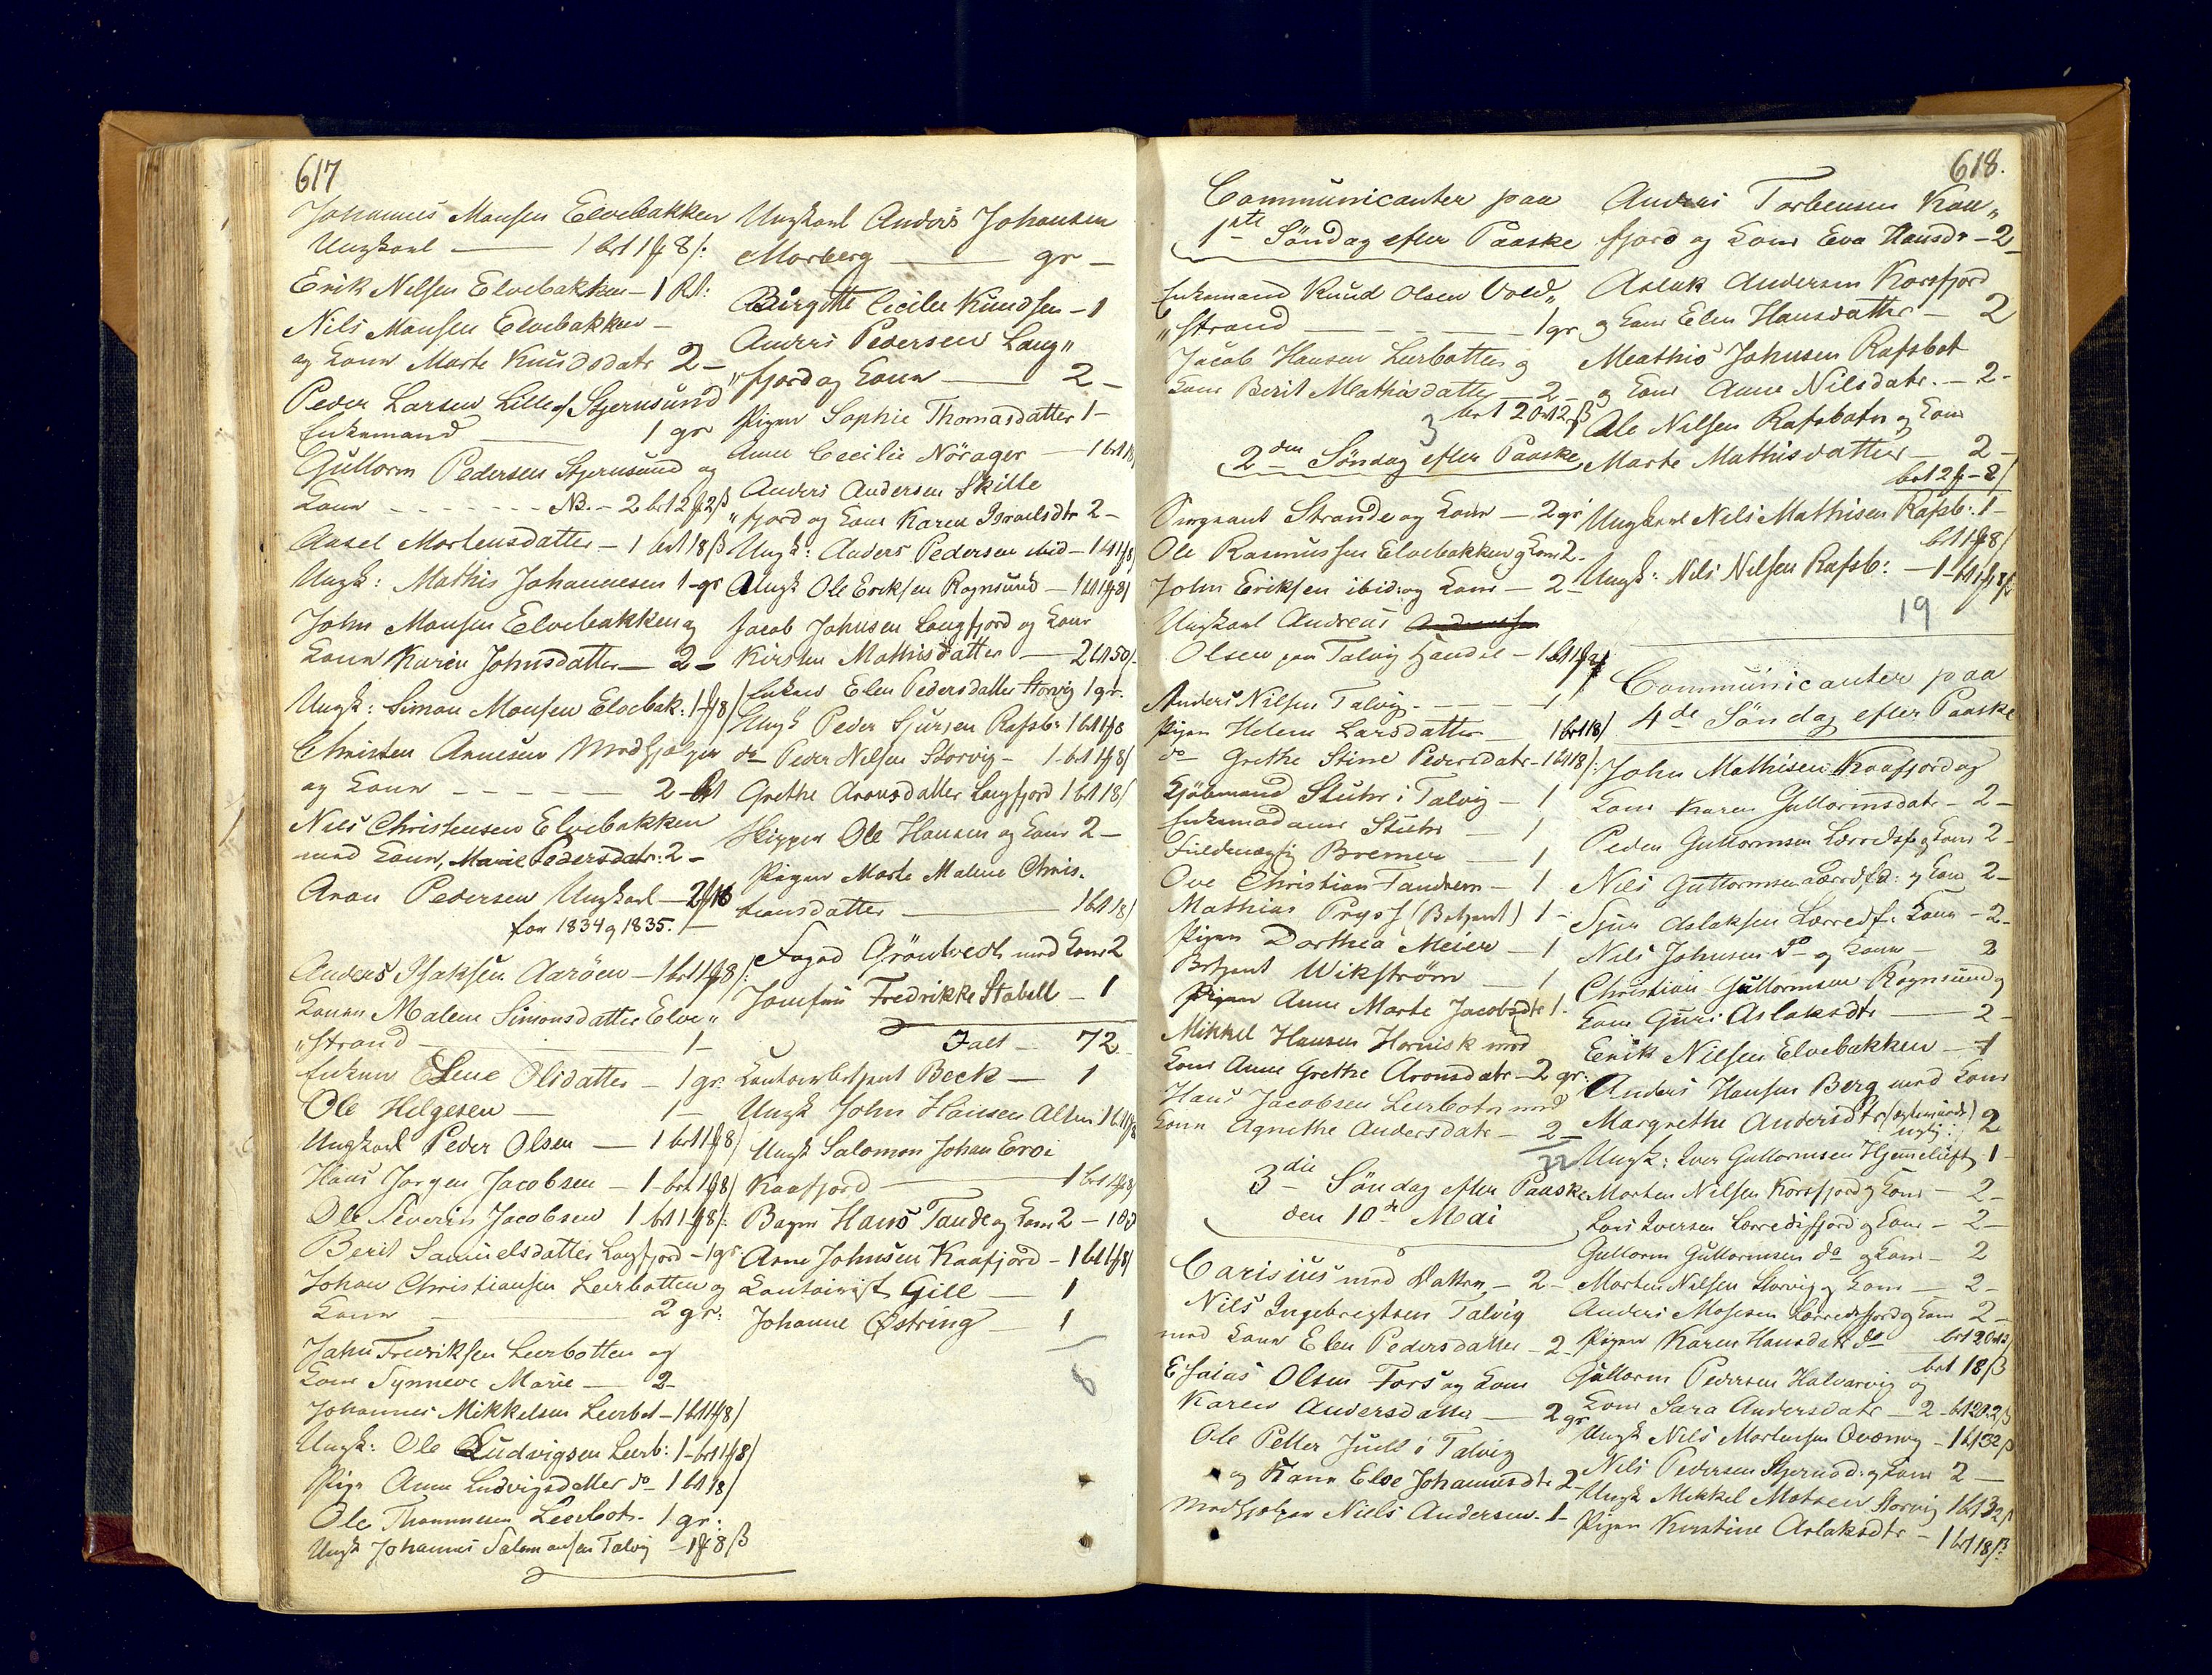 617
Johannes Monsen Elvebakken
Ungkarl — 1 bet 1 f 8/:
Erik Nilsen Elvebakken — 1 Bt:
Nils Monsen Elvebakken —
og Konen Marte Knudsdatr 2 —
Peder Larsen Lille af Stjernsund
Enkemand — 1 gr
Guttorm Pedersen Stjernsund og
Kone - - - - - - - NB. — 2 bet 2 f 2 ß
Aasel Mortensdatter — 1 bet 18 ß
Ungk: Mathis Johannesen 1 - gr
John Monsen Elvebakken og
Konen Karen Johnsdatter — 2 —
Ungk: Simon Monsen Elvebak: 1 f 8/
Christen Arnesen Medhjelper
og Konen - - - - - 2 - bet
Nils Christensen Elvebakken
med Konen, Marie Pedersdatr: 2 —
Aron Pedersen Ungkarl — 2 f 16
for 1834 og 1835. 1 —
Anders Isaksen Aarøen — 1 bet 1 f 8/:
Konen Malene Simonsdatter Elve„
„strand — 1 —
Enken Elene Olsdatter — 1 gr:
Ole Helgesen — 1 —
Ungkarl Peder Olsen — 1 bet 1 f 8/
Hans Jørgen Jacobsen — 1 - bet 1 f 8/
Ole Severin Jacobsen 1 bet 1 f 8/:
Berit Samuelsdatter Langfjord — 1 gr:
Johan Christiansen Leerbotten og
Konen — 2 gr:
John Fredriksen Leerbotten og
Kone Synneve Marie — 2 —
Johannes Mikkelsen Leerbot — 1 bet 1 f 8/
Ungk: Ole Ludvigsen Leerb: 1 - bet 1 f 8/
Pige Anne Ludvigsdatter do 1 bet 18/
Ole Thommesen Leerbot - 1 gr:
Ungk Johannes Salomonsen Talvig — 1 f 8 ß
Ungkarl Anders Johansen
Morberg — gr —
Birgitte Cecilie Knudsen — 1
Anders Pedersen Lang„
„fjord og Konen — 2 —
Pigen Sophie Thomasdatter 1 —
Anne Cecilie Nørager — 1 bet 18
Anders Andersen Skille
„fjord og Kone Karen Israelsdtr 2 —
Ungk: Anders Pedersen ibid — 1 bet 1 f 8/
Ungk Ole Eriksen Rognsund — 1 bet 1 f 8/
Jacob Johnsen Langfjord og Kone
Kirsten Mathisdatter — 2 bet 50/.
Enken Elen Pedersdatter Storvig 1 gr.
Ungk Peder Sjursen Rafsb: 1 bet 1 f 8
do Peder Nilsen Storvig — 1 - bet 1 f 8/
Grethe Aronsdatter Langfjord 1 bet 18/
Skipper Ole Hansen og Kone 2 —
Pigen Marte Malene Chris-
tiansdatter — 1 bet 18/
Foged Grönlvedt med Kone 2
Jomfrue Fredrikke Stabell — 1
Talt — 72
Contoirbetjent Beck — 1
Ungk John Hansen Alten 1 bet 1 f 8
Ungk Salomon Johan Eroi
Kaafjord — 1 bet 1 f 8/
Bager Hans Tande og Kone 2 —
Arne Johnsen Kaafjord — 1 bet 1 f 8/
Contoirist Gill — 1
Johanne Østring — 1
8
618.
Communicanter paa
1ste Söndag efter Paaske
Enkemand Knud Olsen Vold„
„strand — 1 gr
Jacob Hansen Leerbotten og
Kone Berit Mathisdatter — 2 —
3 bet 2 Ort 2 ß
2den Söndag efter Paaske
Sergeant Strande og Kone — 2 gr
Ole Rasmussen Elvebakken og Kone 2 —
John Eriksen ibid: og Kone — 2 —
Ungkarl Andreas
Olsen paa Talvig Handel — 1 bet 1 f
Anders Nilsen Talvig - - - - 1
Pigen Helene Larsdatter — 1 bet 18/
do Grethe Stine Pedersdatr — 1 bet 18/:
Kjöbmand Stuhr i Talvig — 1
Enkemadame Stuhr — 1
Fuldmægtig Bremer — 1
Ove Christian Tandrem — 1
Mathias Prysz (Betjent) 1 —
Pigen Dorthea Meier — 1
Betjent Wikström — 1
Pigen Anne Marte Jacobsdtr 1.
Mikkel Hansen Hornisk med
Kone Anne Grethe Aronsdatr — 2 gr:
Hans Jacobsen Leerbotn med
Konen Agnethe Andersdatr — 2 —
22
3die Söndag efter Paaske
den 10de Mai
Carisius med Datter — 2 —
Nils Ingebregtsen Talvig
med Konen Elen Pedersdatter — 2 —
Esaias Olsen Fors og Kone
Karen Andersdatter — 2 gr
Ole Petter Juell i Talvig
og Konen Else Johannesdtr 2 —
Medhjelper Niels Andersen — 1 —
Anders Torbensen Kaa„
fjord og Kone Eva Hansdr — 2
Aslak Andersen Korsfjord
og Kone Elen Hansdatter — 2
Mathis Johnsen Rafsbot
og Kone Anne Nilsdatr. — 2 —
Ole Nilsen Rafsbotn og Kone
Marte Mathisdatter — 2 —
bet 2 f - 8/
Ungkarl Nils Mathisen Rafsb: 1 —
bet 1 f 8/
Ungk: Nils Nilsen Rafsb: — 1 - bet 1 f 8 ß
19
Communicanter paa
4de Söndag efter Paaske
John Mathisen Kaafjord og
Kone Karen Guttormsdatr — 2 —
Peder Guttormsen Lerredsf. og Kone 2 —
Nils Guttormsen Lerredsfd: og Kone 2 —
Sjur Aslaksen Lerredf: Kone — 2 —
Nils Johnsen do og Konen — 2
Christian Guttormsen Rognsund og
Kone Guri Aslaksdtr — 2 —
Eerik Nilsen Elvebakken — 1
Anders Hansen Berg med Kone
Margrethe Andersdtr 2
Ungk: Iver Guttormsen Hjemeluft 1 —
Morten Nilsen Korsfjord og Kone — 2 —
Lars Iversen Lerredsfjord og Kone — 2 —
Guttorm Guttormsen do og Kone — 2
Morten Nilsen Storvig og Kone — 2 —
Anders Mosesen Lerredsfjord og Kone 2 —
Pigen Karen Hansdatr do
bet 18 ß
Guttorm Pedersen Halvarvig og
Kone Sara Andersdatr — 2 — bet 2 Ort 2 ß
Ungk Nils Mortensen — 1 bet 32 ß
Nils Pedersen Stjernsd: og Kone 2 —
Ungk Mikkel Matsen Storvig 1 bet 32 ß
Pigen Kirstine Aslaksdtr — 1 bet 18 ß